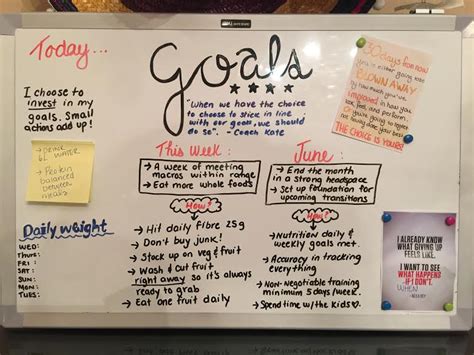 Today...
I choose to
invest in my
goals. Small
actions add up!
Goals
"When we have the choice
to choose to stick in line
with our goals, we should
do so". - Coach Kate
30 days from now
you're either going to be
BLOWN AWAY
by how much you've
improved in how you
look, feel, and perform
THE CHOICE IS YOURS!
- DRINK
6L WATER
- Protein
balanced
between
meals
This Week:
→ A week of meeting
macros within range
→ Eat more whole foods
How?
→ Hit daily fibre 25g
→ Don't buy junk!
→ Stock up on veg & fruit
→ Wash & cut fruit
right away so it's always
ready to grab
→ Eat one fruit daily
June:
→ End the month
in a strong headspace
→ Set up foundation for
upcoming transitions
How?
→ Nutrition daily &
weekly goals met.
→ Accuracy in tracking
everything
→ Non-negotiable training
minimum 5 days/week.
→ Spend time w/the kids
Daily weight
WED:
THUR:
FRI:
SAT:
SUN:
MON:
TUES:
I ALREADY KNOW
WHAT GIVING UP
FEELS LIKE.
I WANT TO SEE
WHAT HAPPENS
IF I DON'T.
WHEN